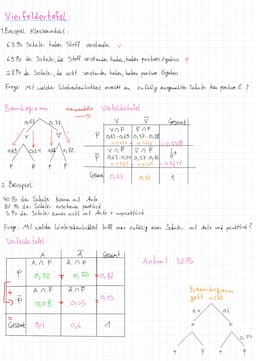 Vierfeldertafel:
1. Beispiel Klassenarbeit:
63% der Schüler haben Stoff verstanden V
63% der Schüler, die Stoff verstanden haben, haben positives Ergebnis P
28% der Schüler, die nicht verstanden haben, haben positives Ergebnis
Frage: Mit welcher Wahrscheinlichkeit erreicht ein zufällig ausgewählter Schüler das positive E.?
Baumdiagramm: Vierfeldertafel:
V V̅ Gesamt
0,63 0,37
V V̅
P V∩P V̅∩P
V∩P̅ V̅∩P̅
Gesamt 0,63 0,37 1
P P̅ P P̅
2. Beispiel:
40% der Schüler kommen mit Auto
87% der Schüler erscheinen pünktlich
5% der Schüler kamen nicht mit Auto + unpünktlich
Frage: Mit welcher Wahrscheinlichkeit trifft man zufällig einen Schüler mit Auto und pünktlich?
Vierfeldertafel:
A A̅ Gesamt
A∩P A̅∩P
P 0,32 + 0,55 = 0,87
A∩P̅ A̅∩P̅
P̅ 0,08 + 0,05 = 0,13
Gesamt 0,4 0,6 1
Antwort 32%
Baumdiagramm
geht nicht
0,4 0,6
A A̅